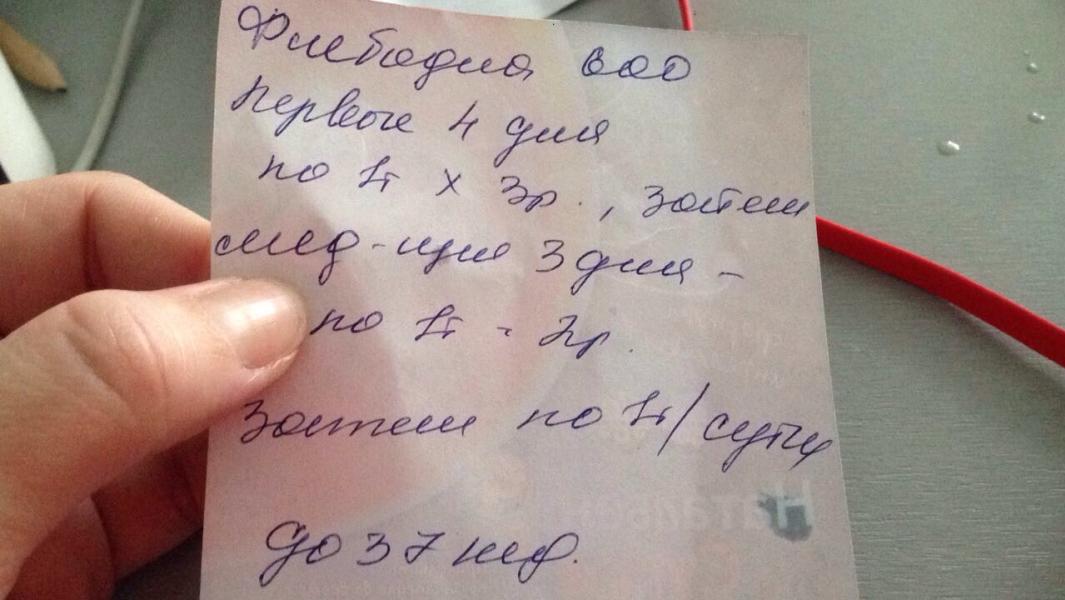 Флебодиа 600
первые 4 дня
по 1т х 3р., затем
след-щие 3 дня -
по 1т × 2р.
Затем по 1т/сутки
до 37 нед.
Натальей